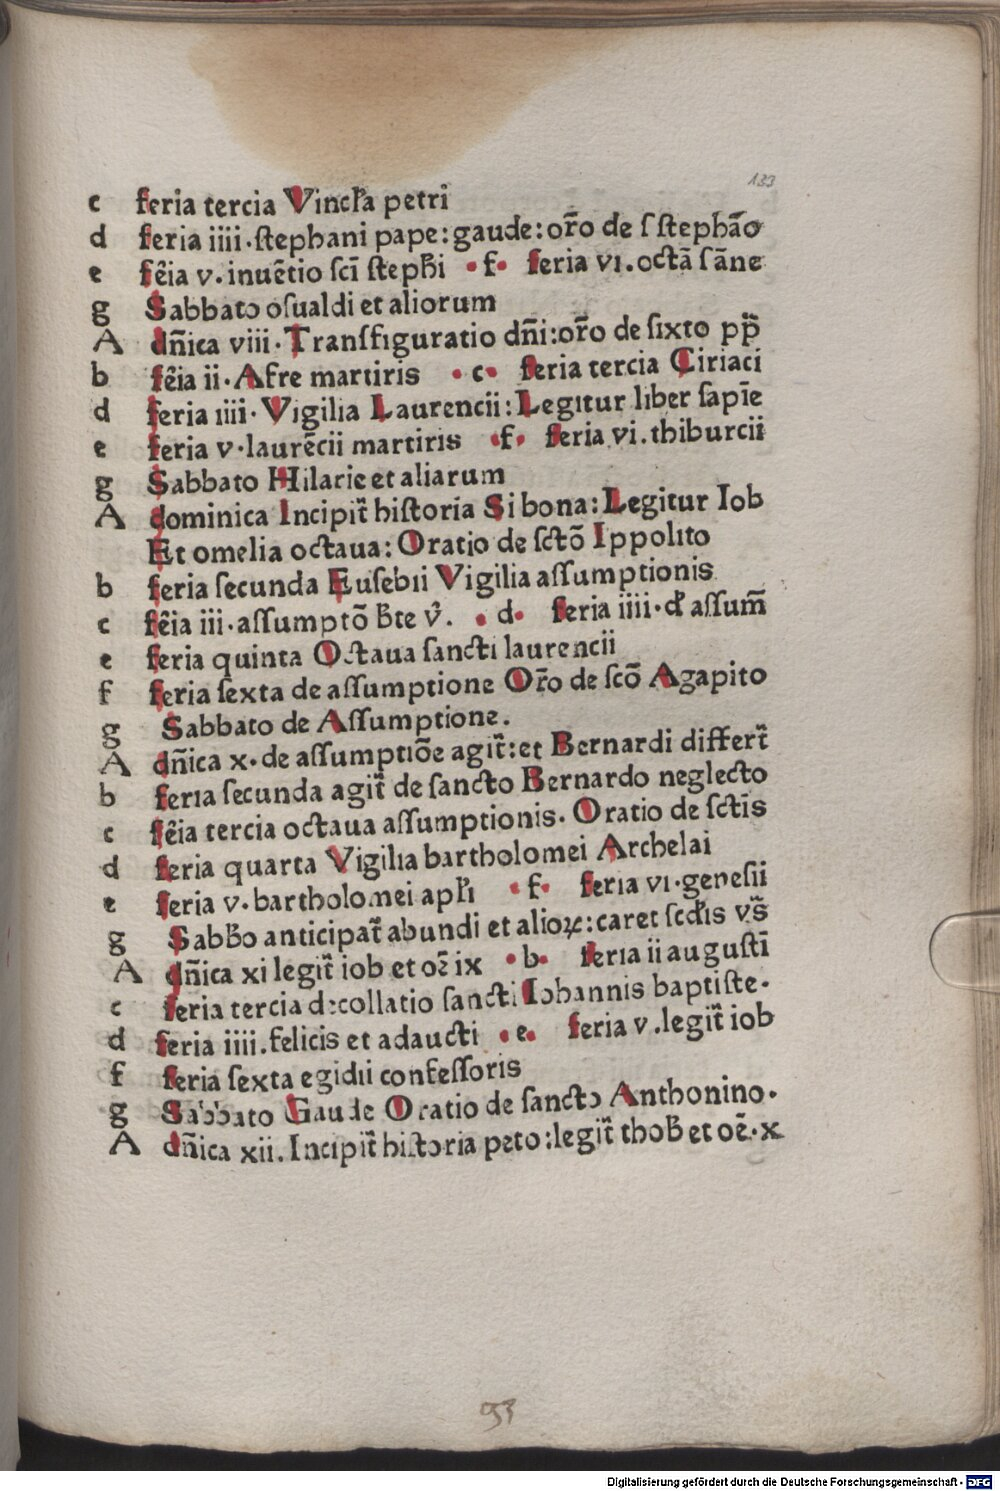 133
c feria tercia Vincl̃a petri
d feria iiii·ſtephani pape:gaude:or̃o de ſ ſtephão
e fẽia v.inuẽtio ſcī ſteph̃i ·f· feria vi.octã ſãne
g Sabbato oſualdi et aliorum
A dñica viii·Tranſfiguratio dñi:or̃o de ſixto pp̃
b fẽia ii·Afre martiris ·c· feria tercia Ciriaci
d feria iiii·Vigilia Laurencii:Legitur liber ſapīe
e feria v·laurẽcii martiris ·f· feria vi.thiburcii
g Sabbato Hilarie et aliarum
A dominica Incipit̃ hiſtoria Si bona:Legitur Iob
Et omelia octaua:Oratio de ſctõ Ippolito
b feria ſecunda Euſebii Vigilia aſſumptionis
c fẽia iii·aſſumptõ b̃te v̓. ·d· feria iiii·d̓ aſſum̃
e feria quinta Octaua ſancti laurencii
f feria ſexta de aſſumptione Or̃o de ſcõ Agapito
g Sabbato de Aſſumptione.
A dñica x·de aſſumptiõe agit̃:et Bernardi differt̃
b feria ſecunda agit̃ de ſancto Bernardo neglecto
c fẽia tercia octaua aſſumptionis·Oratio de ſctīs
d feria quarta Vigilia bartholomei Archelai
e feria v·bartholomei apl̃i ·f· feria vi·geneſii
g Sabb̃o anticipat̃ abundi et alioꝝ:caret ſcd̃is vs̃
A dñica xi legit̃ iob et oz̃ ix ·b· feria ii auguſtī
c feria tercia decollatio ſancti Iohannis baptiſte·
d feria iiii.felicis et adaucti ·e· feria v.legit̃ iob
f feria ſexta egidii confeſſoris
g Sabbato Gaude Oratio de ſancto Anthonino·
A dñica xii.Incipit̃ hiſtoria peto:legit̃ thob̃ et oẽ·x
93
Digitalisierung gefördert durch die Deutsche Forschungsgemeinschaft - DFG